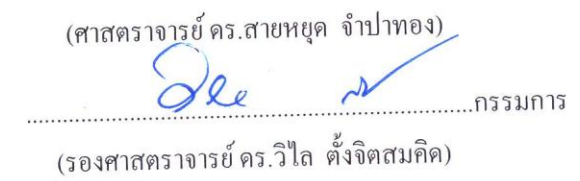 (ศาสตราจารย์ ดร.สายหยุด จำปาทอง)
................................................................กรรมการ
(รองศาสตราจารย์ ดร.วิไล ตั้งจิตสมคิด)